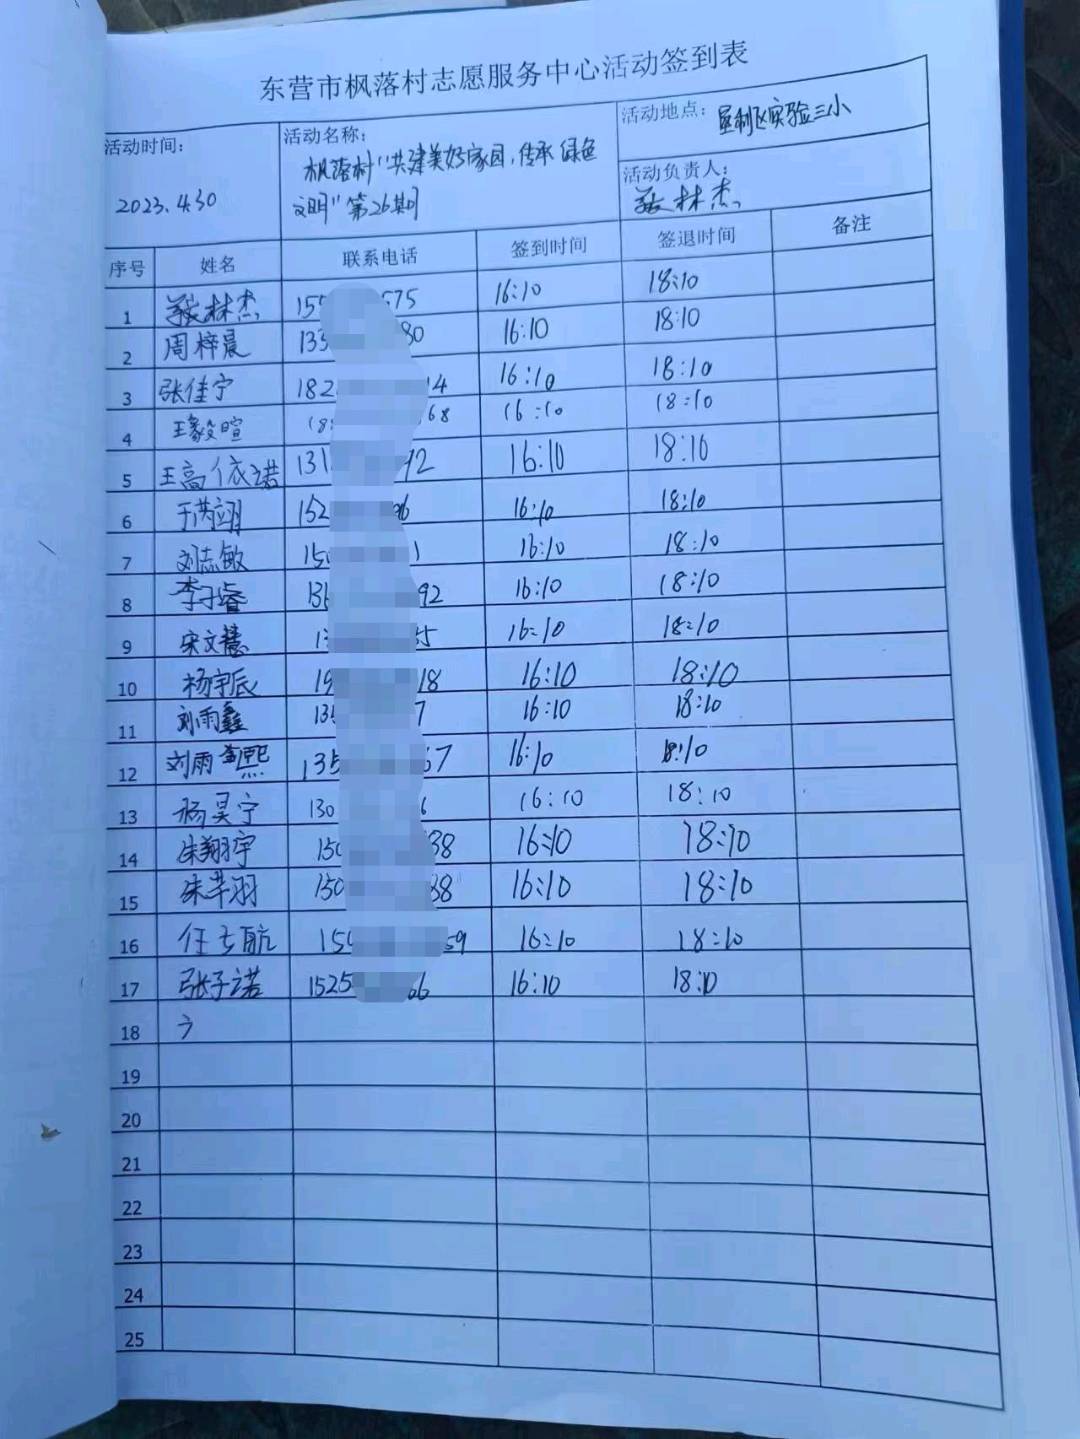 东营市枫落村志愿服务中心活动签到表
活动时间：
2023.4.30
活动名称：
枫落村“共建美好家园，传承绿色
文明”第26期
活动地点：
垦利区实验三小
活动负责人：
林杰
序号 姓名 联系电话 签到时间 签退时间 备注
1 林杰 155 575 16:10 18:10
2 周梓晨 133 80 16:10 18:10
3 张佳宁 182 14 16:10 18:10
4 王毅暄 188 68 16:10 18:10
5 王高依诺 131 92 16:10 18:10
6 于洪翊 152 96 16:10 18:10
7 刘志敏 150 1 16:10 18:10
8 李子睿 136 92 16:10 18:10
9 宋文慧 13 35 16:10 18:10
10 杨宇辰 19 18 16:10 18:10
11 刘雨鑫 135 7 16:10 18:10
12 刘雨熙 135 67 16:10 18:10
13 杨昊宁 130 6 16:10 18:10
14 朱翔宇 150 38 16:10 18:10
15 朱芊羽 150 38 16:10 18:10
16 任航 15 59 16:10 18:10
17 张子诺 1525 66 16:10 18:10
18
19
20
21
22
23
24
25